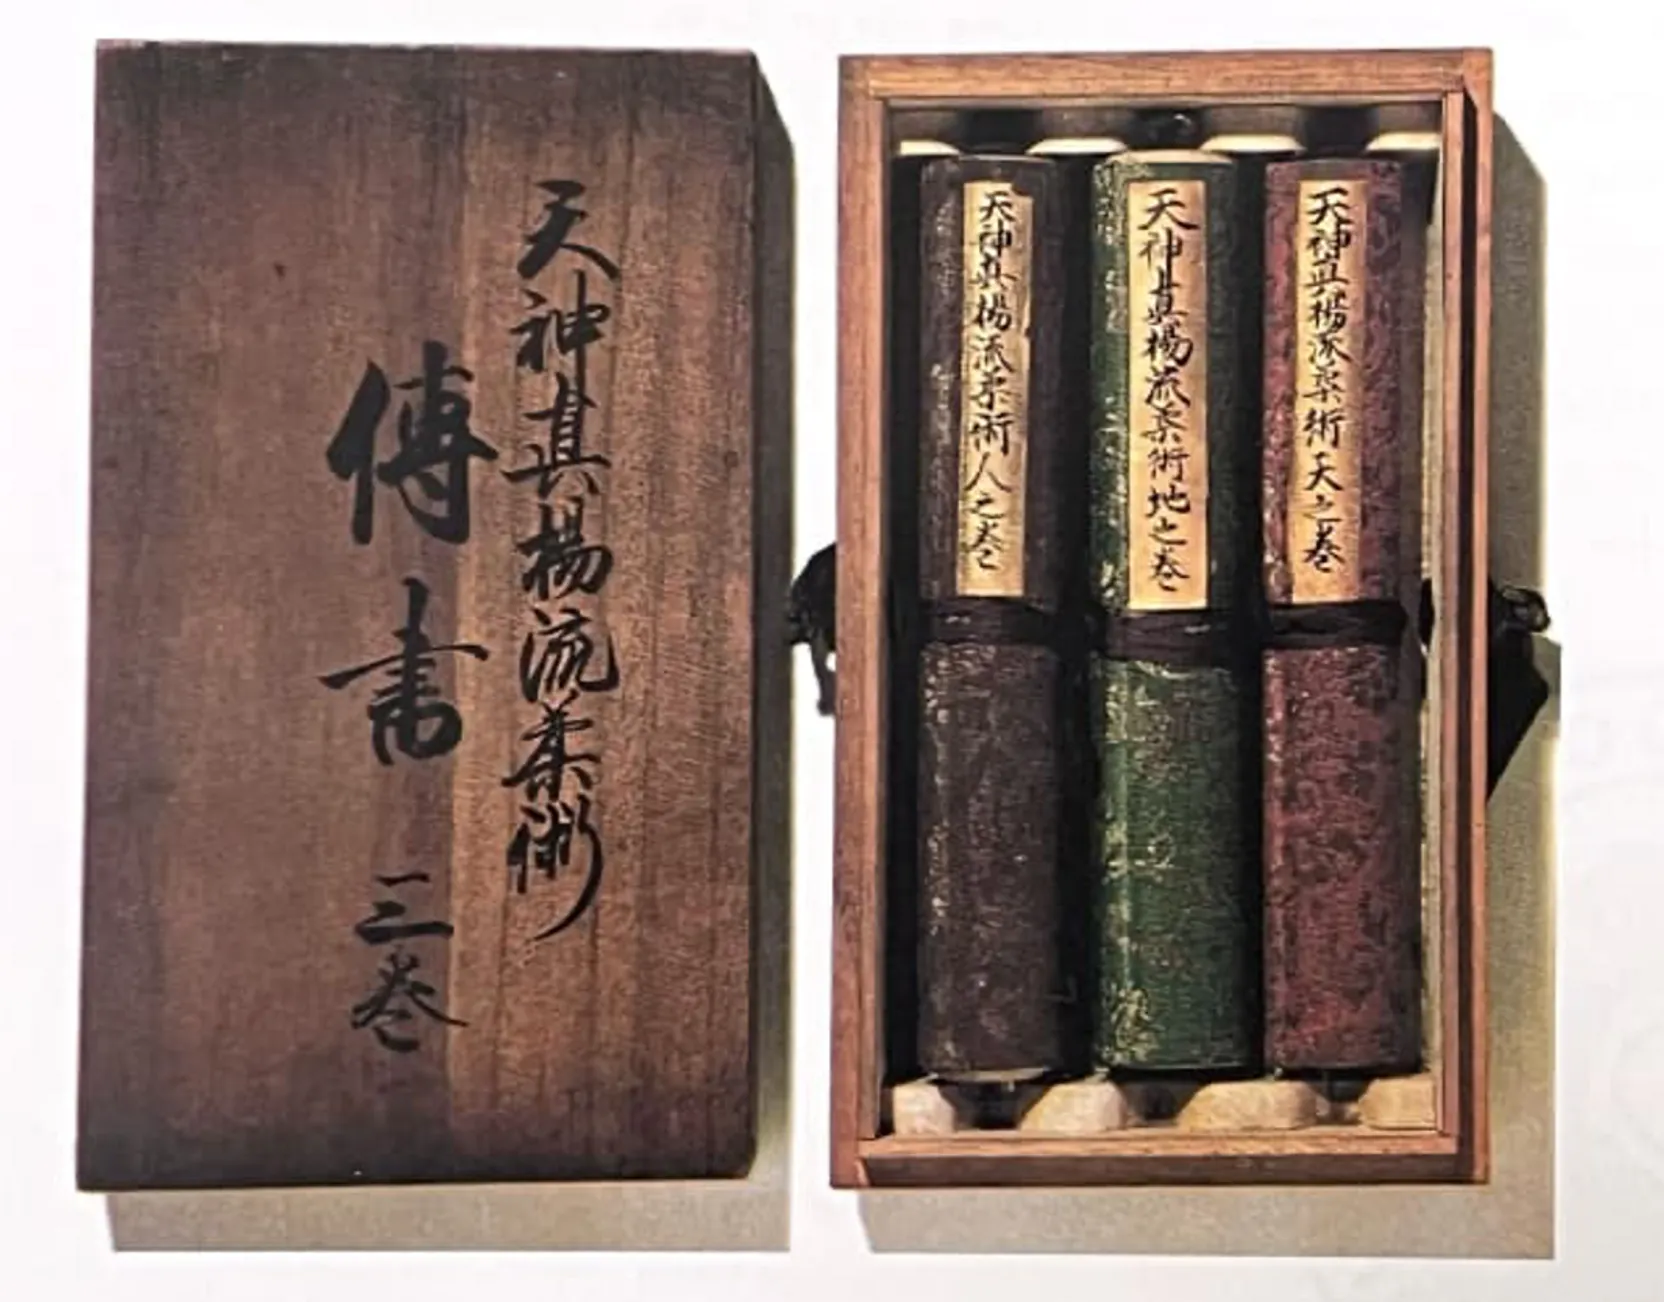 天神真楊流柔術
傳書 三巻
天神真楊流柔術天之巻
天神眞楊流柔術地之巻
天神真楊流柔術人之巻